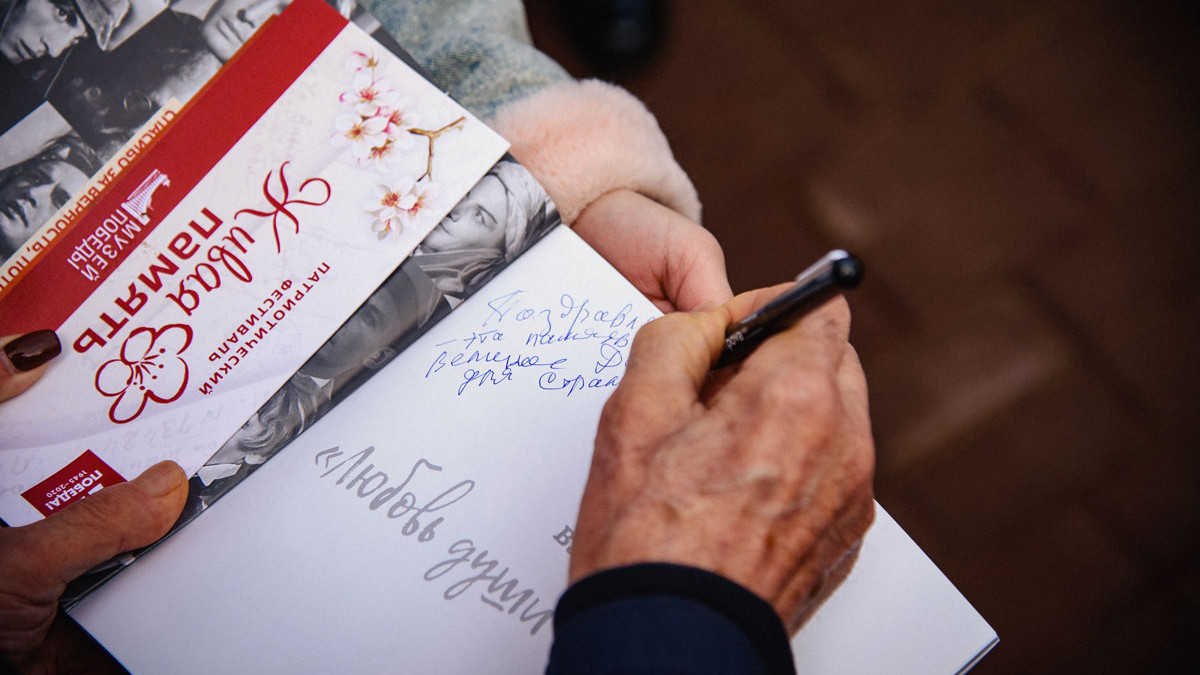 СПАСИБО ЗА ВЕРНОСТЬ, ПО
МУЗЕЙ
ПОБЕДЫ
Живая
память
ПАТРИОТИЧЕСКИЙ
ФЕСТИВАЛЬ
ПОБЕДА!
1945-2020
Поздравл
Великое
для Стран
«Любовь души